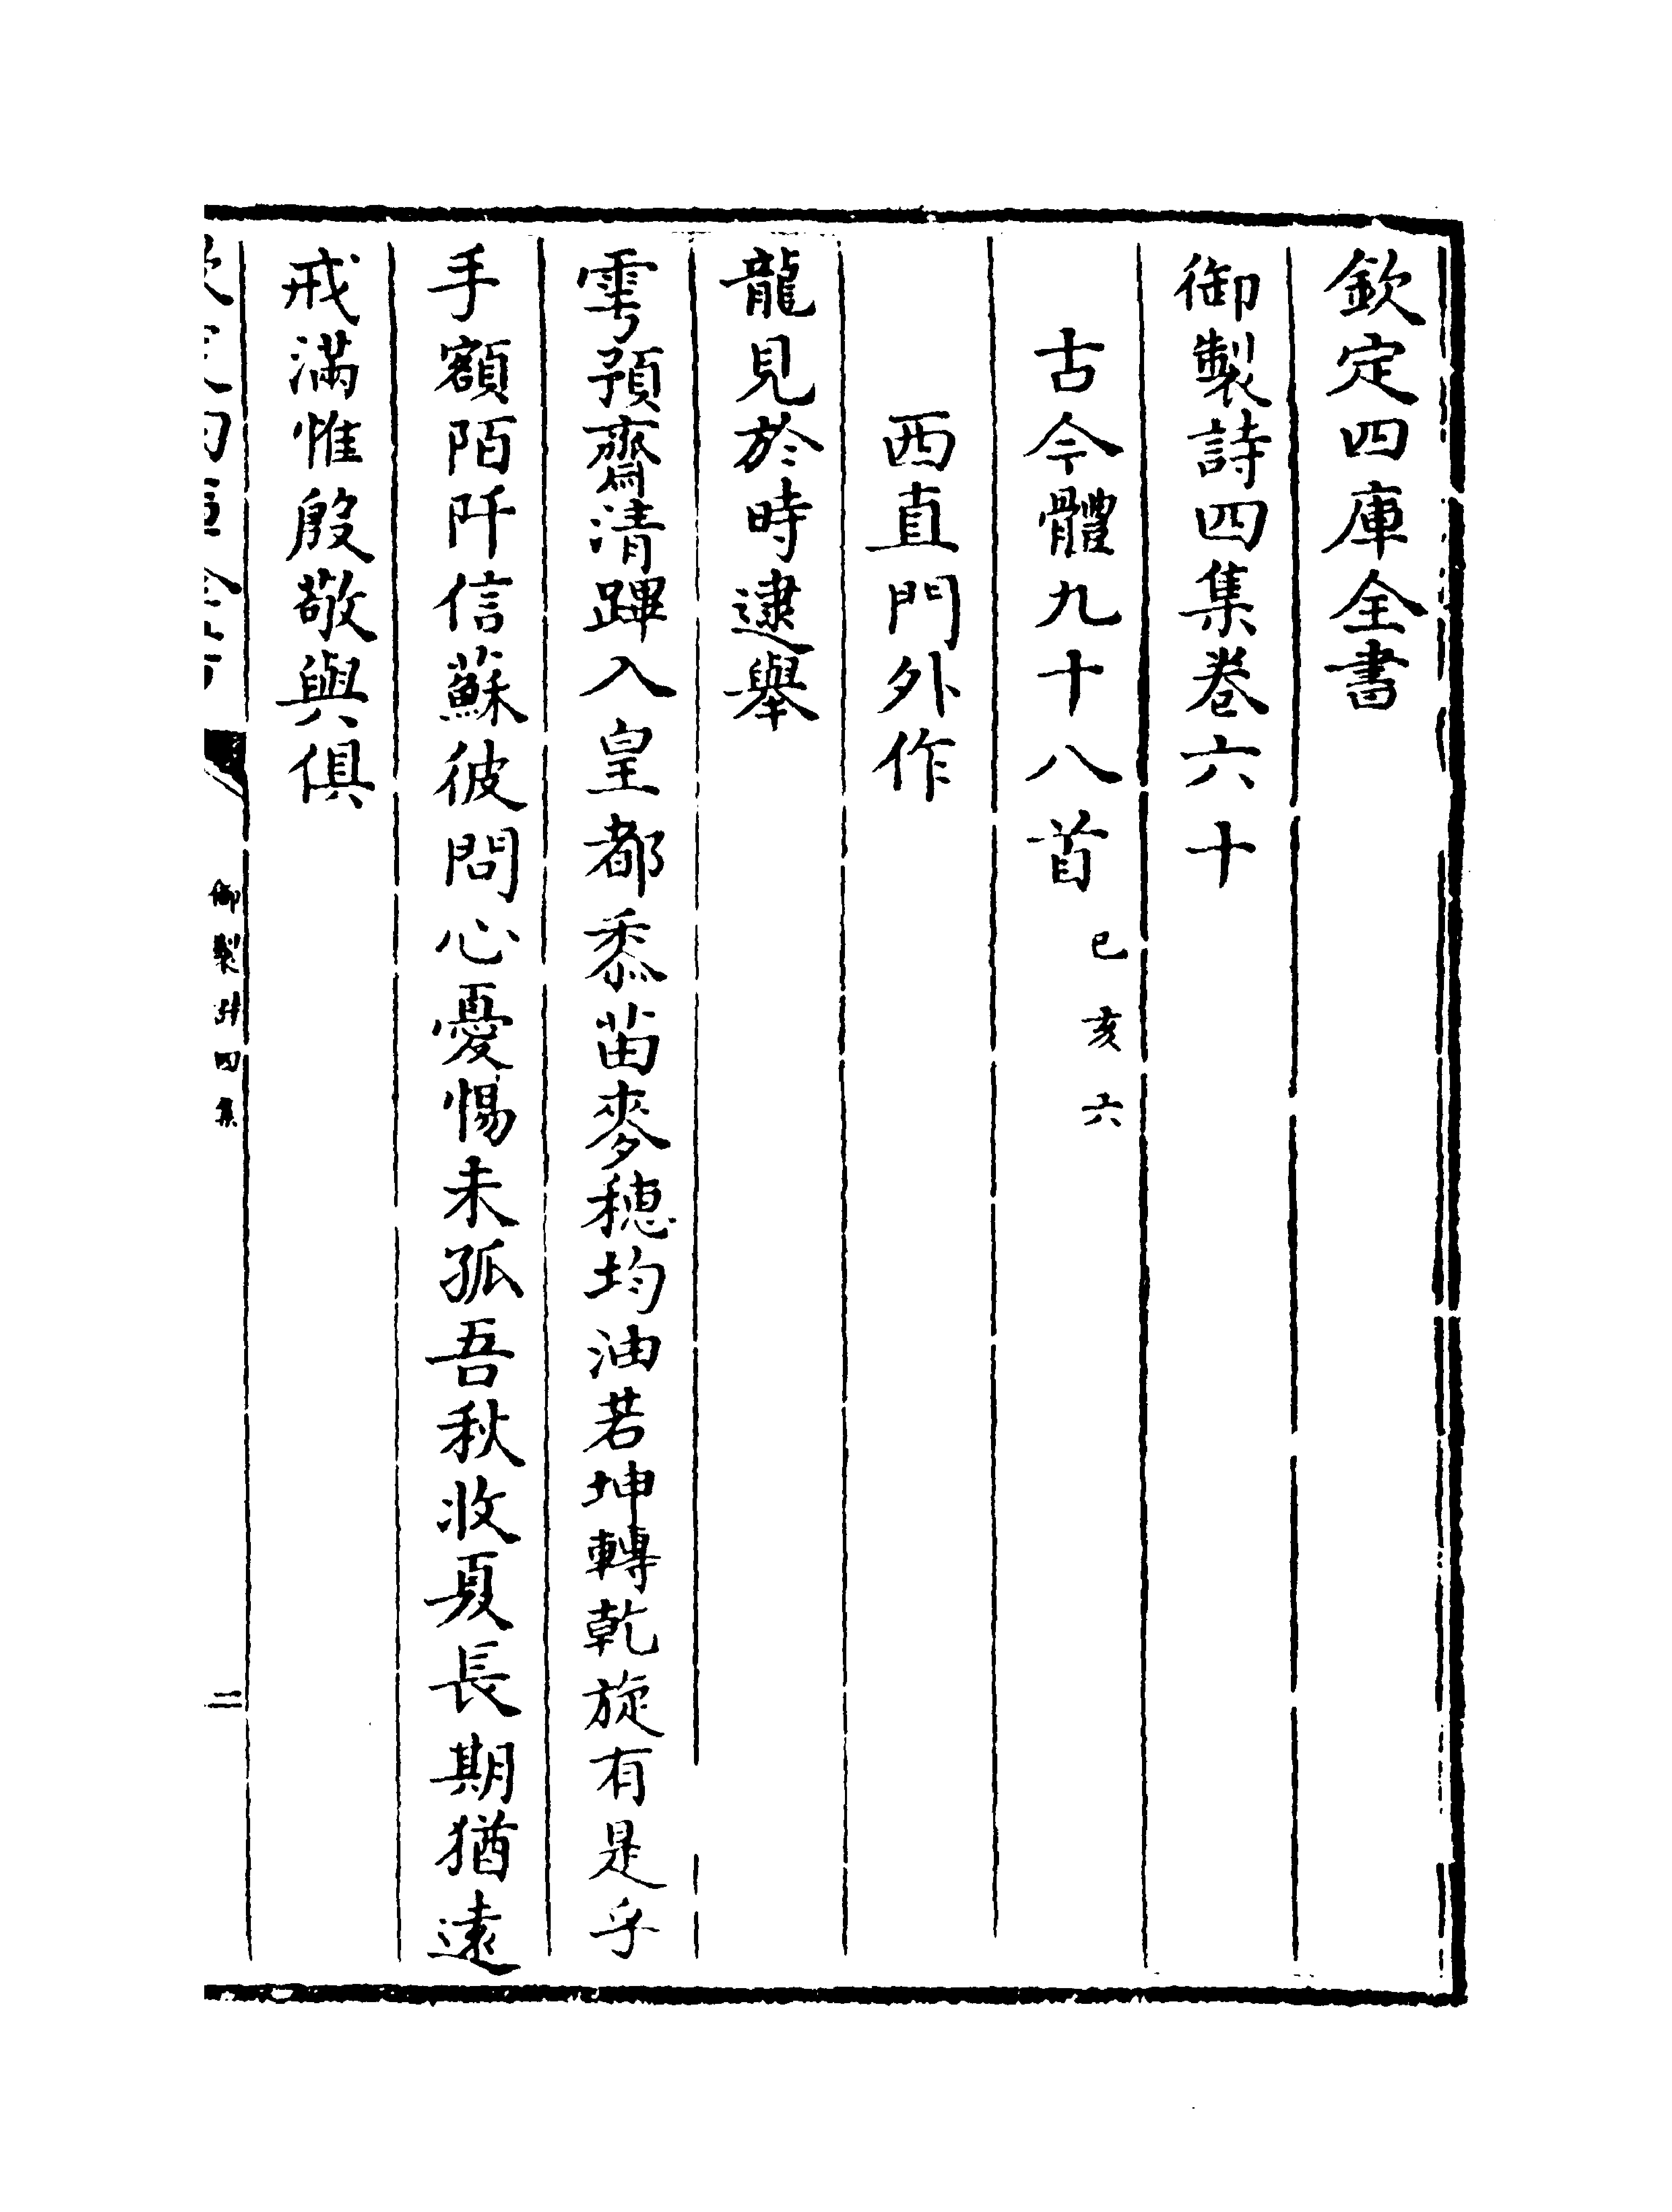 欽定四庫全書
御製詩四集卷六十
古今體九十八首
已亥六
西直門外作
龍見於時逮舉
雩預齋清蹕入皇都黍苗麥穗均油若坤轉乾旋有是乎
手額陌阡信蘇彼問心憂惕未孤吾秋收夏長期猶遠
戒滿惟殷敬與俱
御製詩四集
二